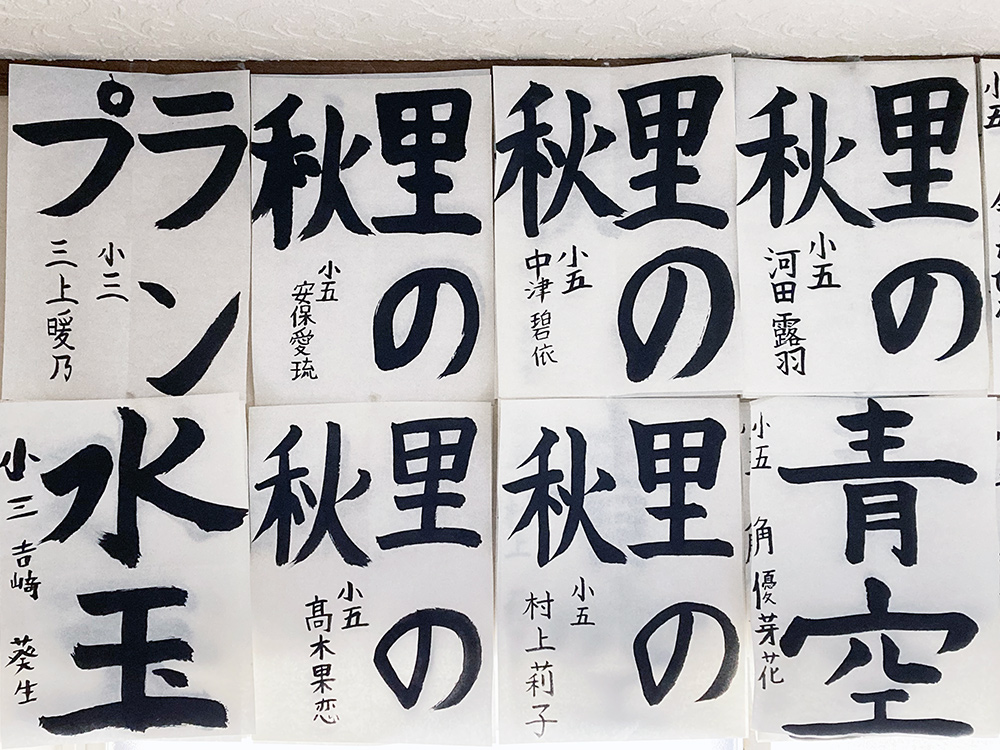 ラン
プ
小三
三上暖乃
里の
秋
小五
安保愛琉
里の
秋
小五
中津碧依
里の
秋
小五
河田露羽
小五
水玉
小三 吉崎 葵生
里の
秋
小五
髙木果恋
里の
秋
小五
村上莉子
青空
小五 角 優芽花